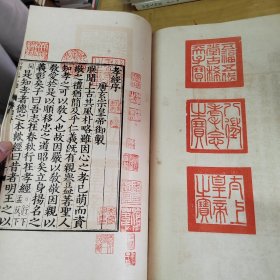 孝經序
唐玄宗皇帝御製
朕聞上古其風朴略雖因心之孝已萌而資
敬之禮猶簡及乎仁義既有親譽益著聖人
知孝之可以教人也故因嚴以教敬因親以
教愛於是以順移忠之道昭矣立身揚名之
義彰矣子曰吾志在春秋行在孝經
是知孝者德之本歟經曰昔者明王之以
五福五代堂古稀天子寶
八徵耄念之寶
太上皇帝之寶